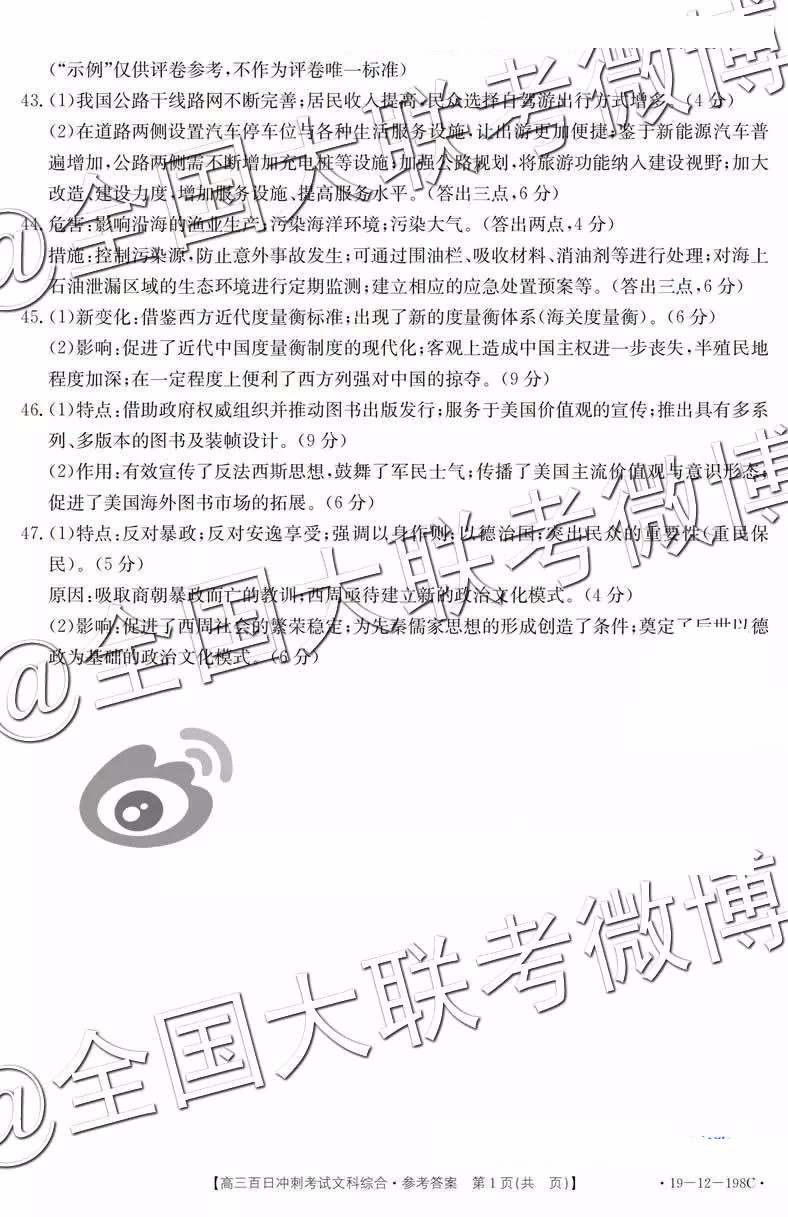 (“示例”仅供评卷参考,不作为评卷唯一标准)
43. (1)我国公路干线路网不断完善;居民收入提高,民众选择自驾游出行方式增多。(4分)
(2)在道路两侧设置汽车停车位与各种生活服务设施,让出游更加便捷;鉴于新能源汽车普
遍增加,公路两侧需不断增加充电桩等设施;加强公路规划,将旅游功能纳入建设视野;加大
改造、建设力度,增加服务设施、提高服务水平。(答出三点,6分)
44. 危害:影响沿海的渔业生产;污染海洋环境;污染大气。(答出两点,4分)
措施:控制污染源,防止意外事故发生;可通过围油栏、吸收材料、消油剂等进行处理;对海上
石油泄漏区域的生态环境进行定期监测;建立相应的应急处置预案等。(答出三点,6分)
45. (1)新变化:借鉴西方近代度量衡标准;出现了新的度量衡体系(海关度量衡)。(6分)
(2)影响:促进了近代中国度量衡制度的现代化;客观上造成中国主权进一步丧失,半殖民地
程度加深;在一定程度上便利了西方列强对中国的掠夺。(9分)
46. (1)特点:借助政府权威组织并推动图书出版发行;服务于美国价值观的宣传;推出具有多系
列、多版本的图书及装帧设计。(9分)
(2)作用:有效宣传了反法西斯思想,鼓舞了军民士气;传播了美国主流价值观与意识形态;
促进了美国海外图书市场的拓展。(6分)
47. (1)特点:反对暴政;反对安逸享受;强调以身作则;以德治国;突出民众的重要性(重民保
民)。(5分)
原因:吸取商朝暴政而亡的教训;西周亟待建立新的政治文化模式。(4分)
(2)影响:促进了西周社会的繁荣稳定;为先秦儒家思想的形成创造了条件;奠定了后世以德
政为基础的政治文化模式。(6分)
@全国大联考微博
@全国大联考微博
@全国大联考微博
【高三百日冲刺考试文科综合·参考答案 第1页(共 页)】 ·19-12-198C·